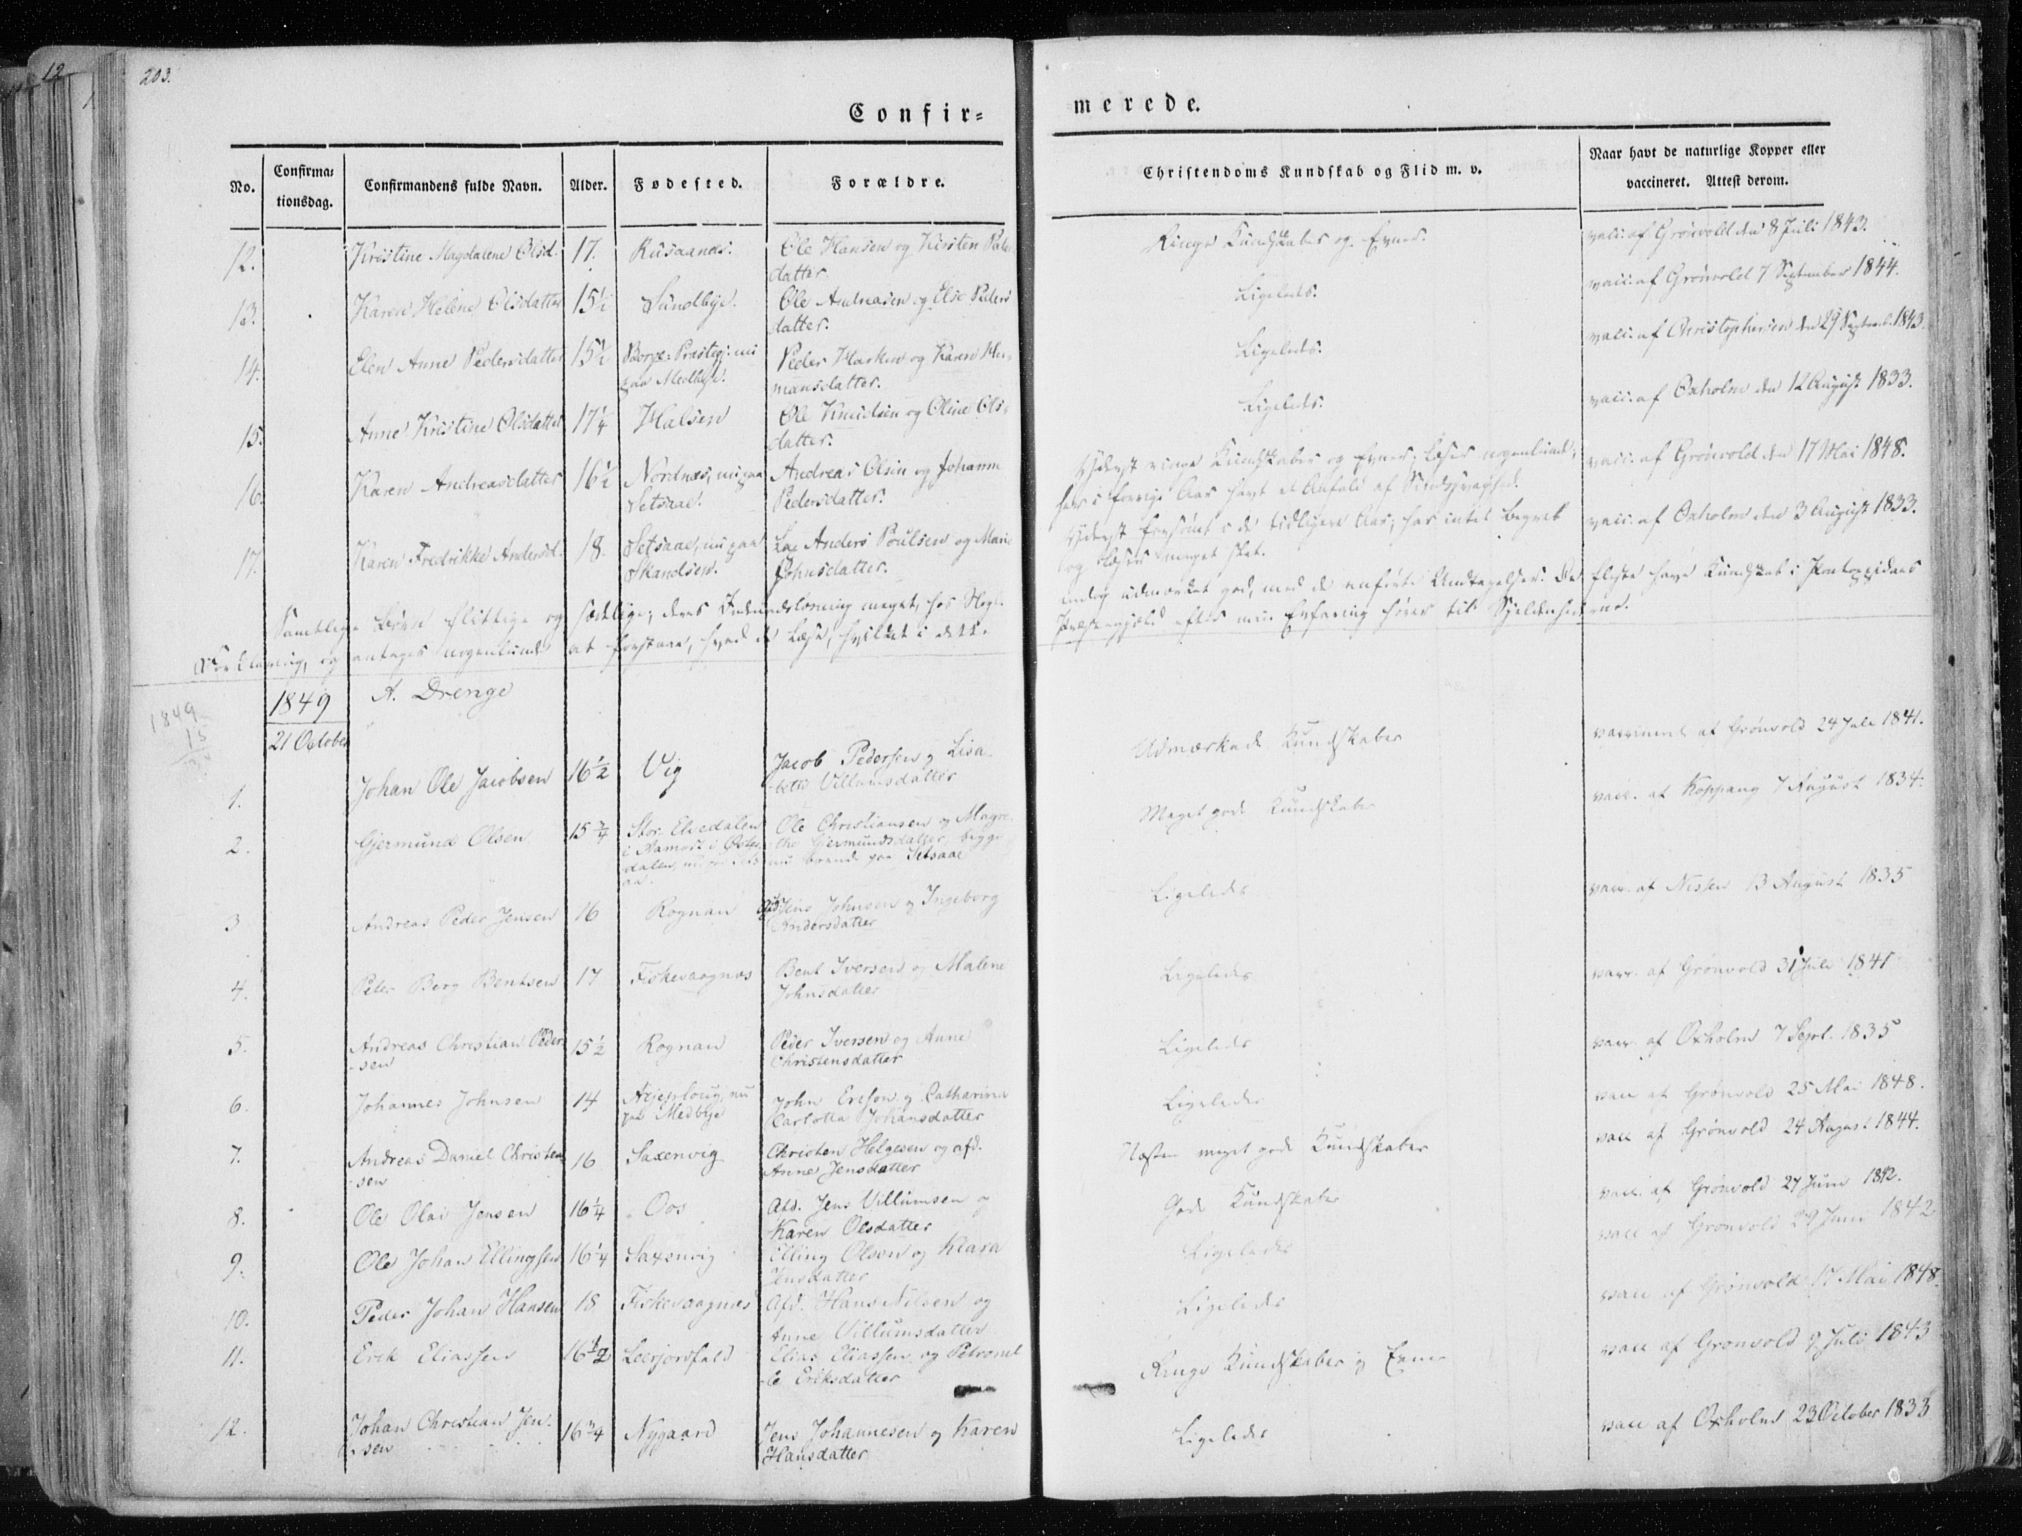 12
203.
Confir=
merede.
No.
Confirma=
tionsdag.
Confirmandens fulde Navn.
Alder.
Fødested.
Forældre.
Christendoms Kundskab og Flid m. v.
Naar havt de naturlige Kopper eller
vaccineret. Attest derom.
12. Kristine Magdalene Olsd. 17. Rusaanes. Ole Hansen og Kirsten Peders
datter. Ringe Kundskaber og Evner. vacc. af Grønvold den 8 Juli 1843.
13. Karen Helene Olsdatter 15½ Sundbye. Ole Andreasen og Else Peders
datter. Ligeledes. vacc. af Grønvold 7 September 1844.
14. Elen Anne Pedersdatter 15½ Borge Præstegj: nu
paa Medbye. Peder Hansen og Karen Her-
mansdatter. Ligeledes. vacc. af Christophersen den 29 Septemb. 1843.
15. Anne Kristine Olsdatter 17¼ Halsen Ole Knudsen og Oline Ols-
datter. Ligeledes. vacc. af Oxholm den 12 August 1833.
16. Karen Andreasdatter 16½ Nordnæs, nu paa
Setsaae. Andreas Olsen og Johanne
Pedersdatter. Yderst ringe Kundskaber og Evner; læser nogenlunde;
har i forrige Aar havt et Anfald af Sindssvaghed. vacc. af Grønvold den 17 Mai 1848.
17. Karen Fredrikke Andersd. 18. Setsaae, nu paa
Skandsen. Anders Poulsen og Marie
Johnsdatter. Yderst forsømt i de tidligere Aar; har intet begreb
og læser meget slet. vacc. af Oxholm den 3 August 1833.
Samtlige Børn flittige og sædelige; deres Indenadslæsning meget, hos Flest
endog udmærket god, med de anførte Undtagelser. De fleste have Kundskab i Pontoppidans
Forklaring, og antages nogenlunde at forstaae, hvad de læse, hvilket i dette
Præstegjæld efter min Erfaring hører til Sjeldenhederne.
1849
15
1849 A. Drenge
21 October
1. Johan Ole Jacobsen 16½ Vig Jacob Pedersen og Lisa-
beth Villumsdatter Udmærkede Kundskaber vaccineret af Grønvold 24 Juli 1841.
2. Gjermund Olsen 15¾ Stor Elvedalen
i Aamodt i Øster-
dalen, nu paa Sets-
aa. Ole Christiansen og Magre-
the Gjermundsdatter, begge
nu boende paa Setsaae Meget gode Kundskaber vacc. af Koppang 7 August 1834.
3 Andreas Peder Jensen 16 Rognan Jens Johnsen og Ingeborg
Andersdatter Ligeledes vacc. af Nissen 13 August 1835
4. Peter Berg Bentsen 17 Fiskevaagnæs Bent Iversen og Malene
Johnsdatter Ligeledes vacc. af Grønvold 31 Juli 1841
5. Andreas Christian Peder-
sen 15½ Rognan Peder Iversen og Anne
Christensdatter Ligeledes vacc. af Oxholm 7 Sept. 1835
6. Johannes Johnsen 14 Arjeploug, nu
paa Medbye John Ersson og Catharina
Carlotta Johansdatter Ligeledes vacc af Grønvold 25 Mai 1848.
7. Andreas Daniel Christen-
sen 16 Saxenvig Christen Helgesen og afd.
Anne Jensdatter Næsten meget gode Kundskaber vacc af Grønvold 24 August 1844.
8. Ole Olai Jensen 16¼ Oos Afd. Jens Villumsen og
Karen Olsdatter Gode Kundskaber vacc. af Grønvold 27 Juni 1842.
9. Ole Johan Ellingsen 16¼ Saxenvig Elling Olsen og Klara
Jensdatter Ligeledes vacc af Grønvold 29 Juni 1842
10. Peder Johan Hansen 18 Fiskevaagnæs Afd. Hans Nilsen og
Anne Villumsdatter Ligeledes vacc af Grønvold 17 Mai 1848.
11. Erik Eliassen 16½ Leerjordfald Elias Eliassen og Petronel-
le Eriksdatter Ringe Kundskaber og Evner vacc af Grønvold 9 Juli 1843
12. Johan Christian Jen-
sen 16¾ Nygaard Jens Johannesen og Karen
Hansdatter Ligeledes vacc af Oxholm 23 October 1833